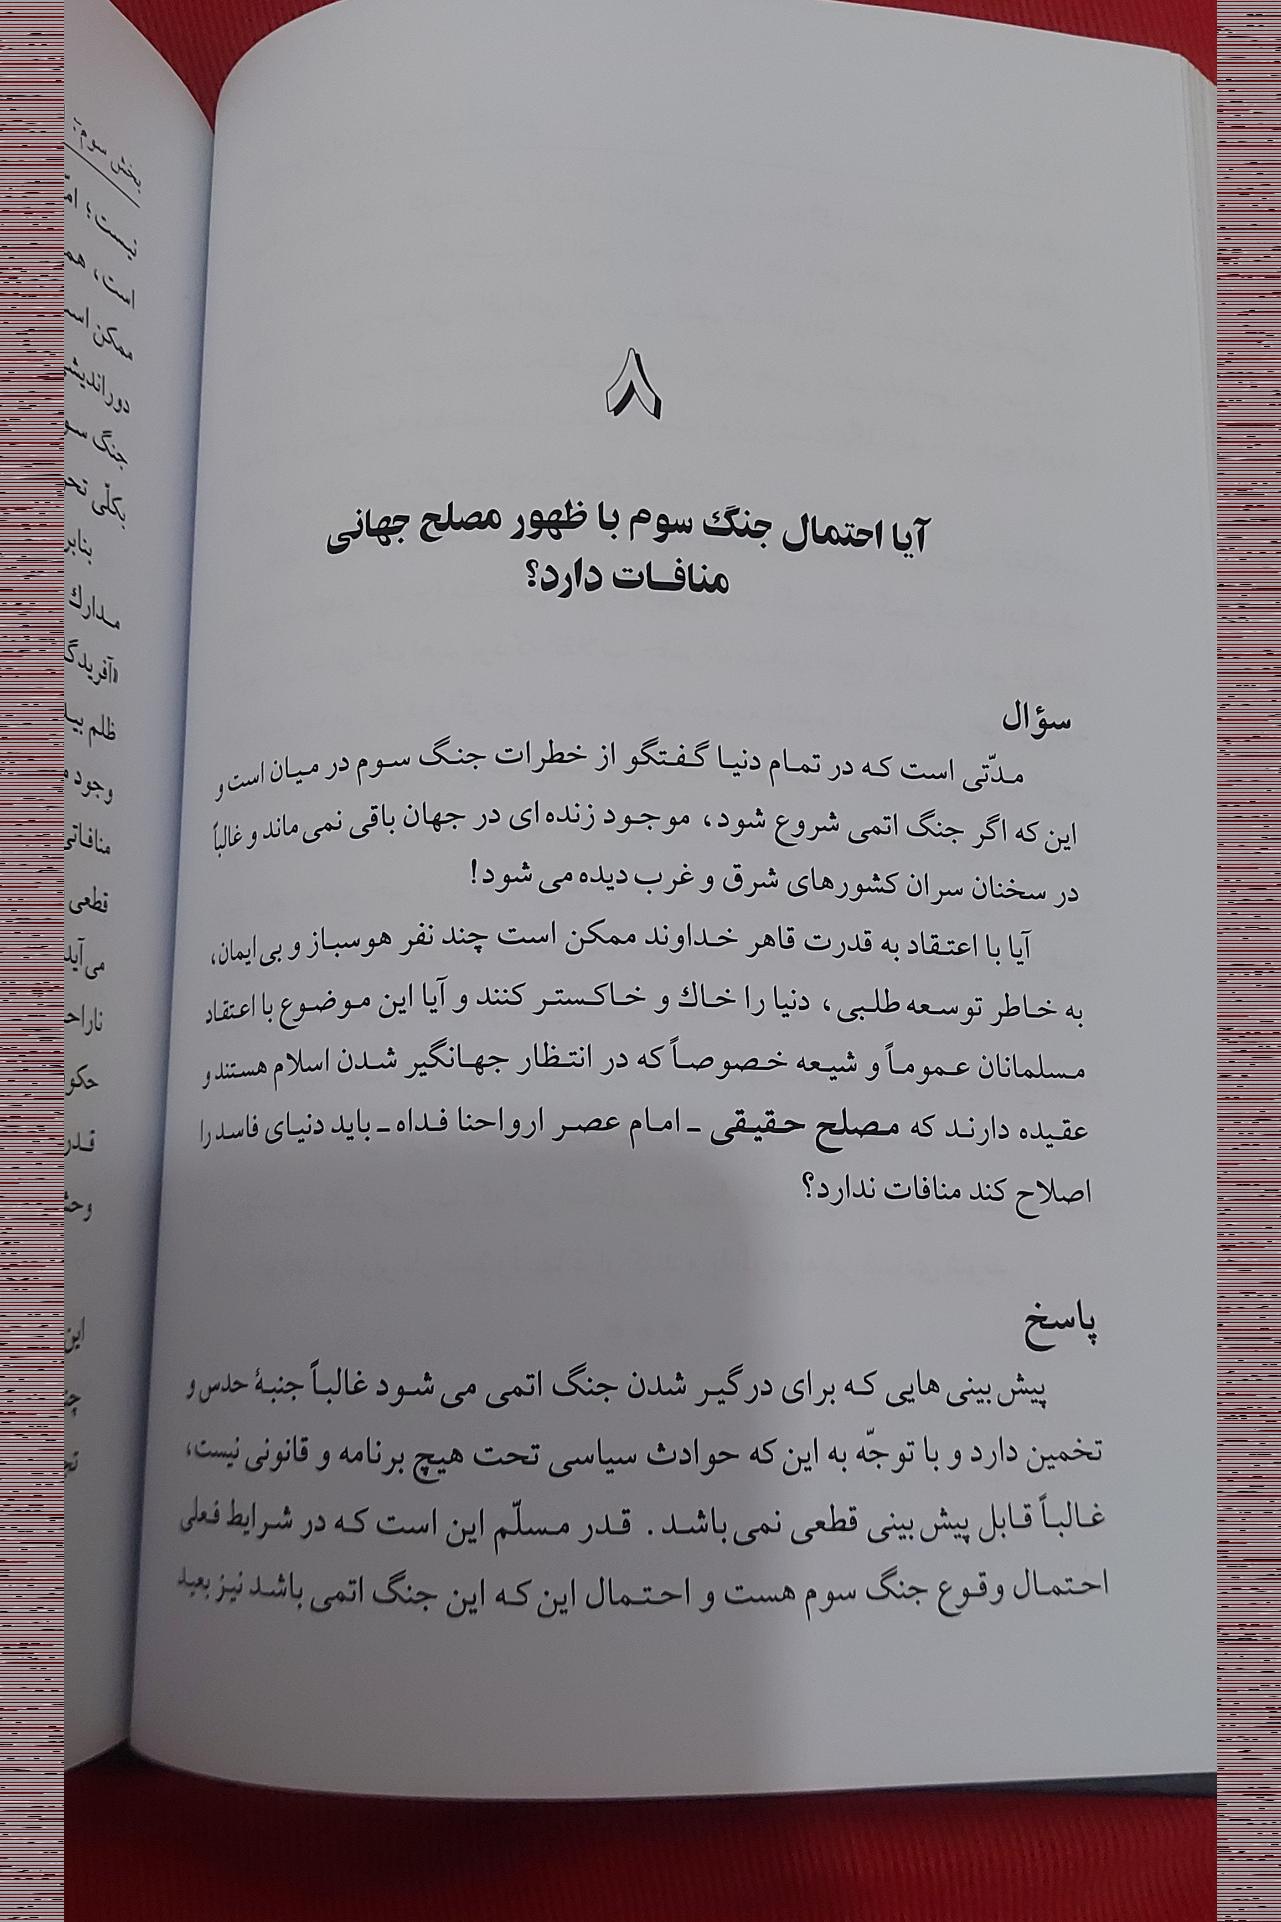 ۸
آیا احتمال جنگ سوم با ظهور مصلح جهانی
منافات دارد؟
سؤال
مدّتی است که در تمام دنیا گفتگو از خطرات جنگ سوم در میان است و
این که اگر جنگ اتمی شروع شود، موجود زنده ای در جهان باقی نمی ماند و غالباً
در سخنان سران کشورهای شرق و غرب دیده می شود!
آیا با اعتقاد به قدرت قاهر خداوند ممکن است چند نفر هوسباز و بی ایمان،
به خاطر توسعه طلبی، دنیا را خاك و خاکستر کنند و آیا این موضوع با اعتقاد
مسلمانان عموماً و شیعه خصوصاً که در انتظار جهانگیر شدن اسلام هستند و
عقیده دارند که مصلح حقیقی ـ امام عصر ارواحنا فداه ـ باید دنیای فاسد را
اصلاح کند منافات ندارد؟
پاسخ
پیش بینی هایی که برای درگیر شدن جنگ اتمی می شود غالباً جنبۀ حدس و
تخمین دارد و با توجّه به این که حوادث سیاسی تحت هیچ برنامه و قانونی نیست،
غالباً قابل پیش بینی قطعی نمی باشد. قدر مسلّم این است که در شرایط فعلی
احتمال وقوع جنگ سوم هست و احتمال این که این جنگ اتمی باشد نیز بعید
بخش سوم:
نیست؛
است،
ممکن
جنگ
بکلّی
مدارك
ظلم
وجود
قطعی
می آید